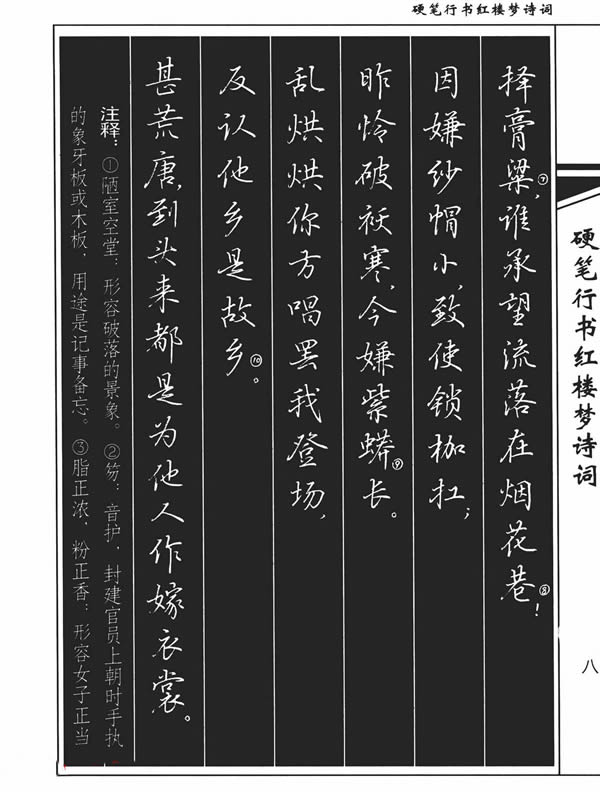 硬笔行书红楼梦诗词
择膏粱⑦,谁承望流落在烟花巷⑧!
因嫌纱帽小,致使锁枷扛;
昨怜破袄寒,今嫌紫蟒⑨长。
乱烘烘你方唱罢我登场,
反认他乡是故乡⑩。
甚荒唐,到头来都是为他人作嫁衣裳。
注释:①陋室空堂:形容破落的景象。②笏:音护,封建官员上朝时手执
的象牙板或木板,用途是记事备忘。③脂正浓,粉正香:形容女子正当
硬笔行书红楼梦诗词
八